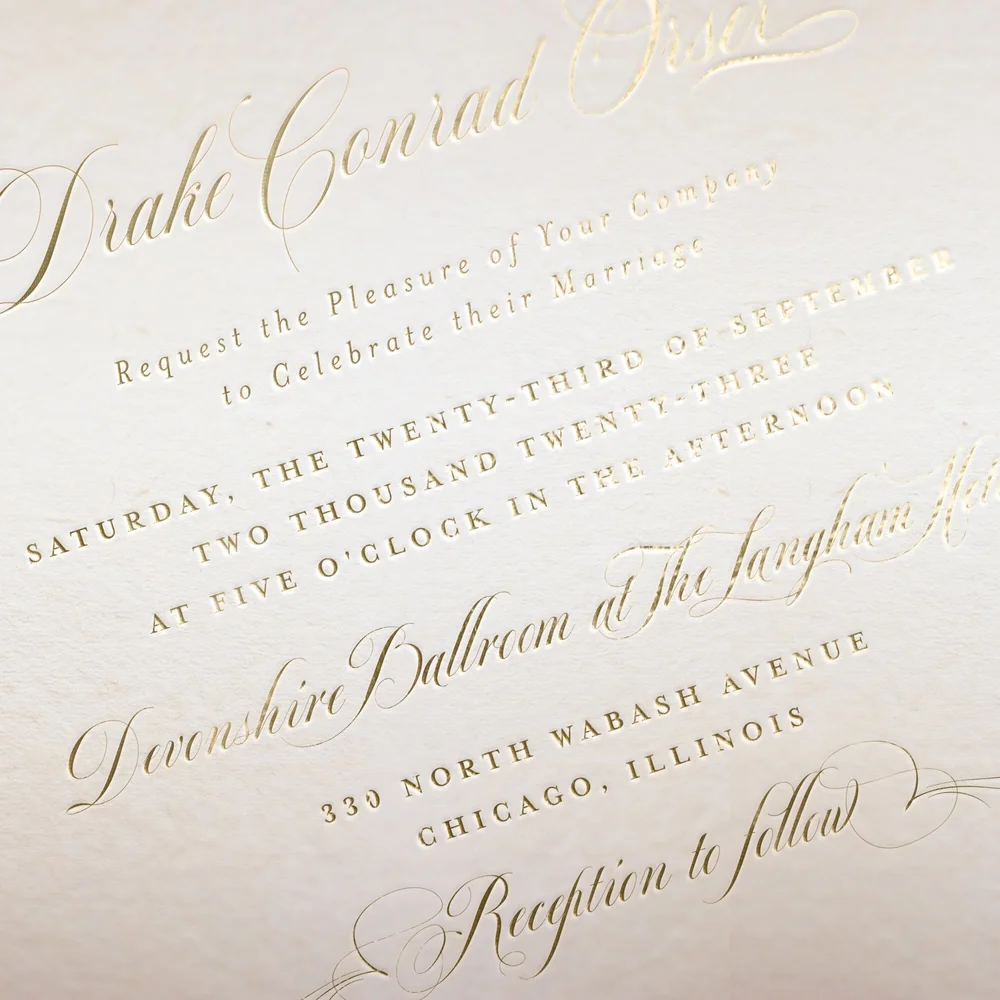 Drake Conrad Orser
Request the Pleasure of Your Company
to Celebrate their Marriage
SATURDAY, THE TWENTY-THIRD OF SEPTEMBER
TWO THOUSAND TWENTY-THREE
AT FIVE O'CLOCK IN THE AFTERNOON
Devonshire Ballroom at The Langham
330 NORTH WABASH AVENUE
CHICAGO, ILLINOIS
Reception to follow